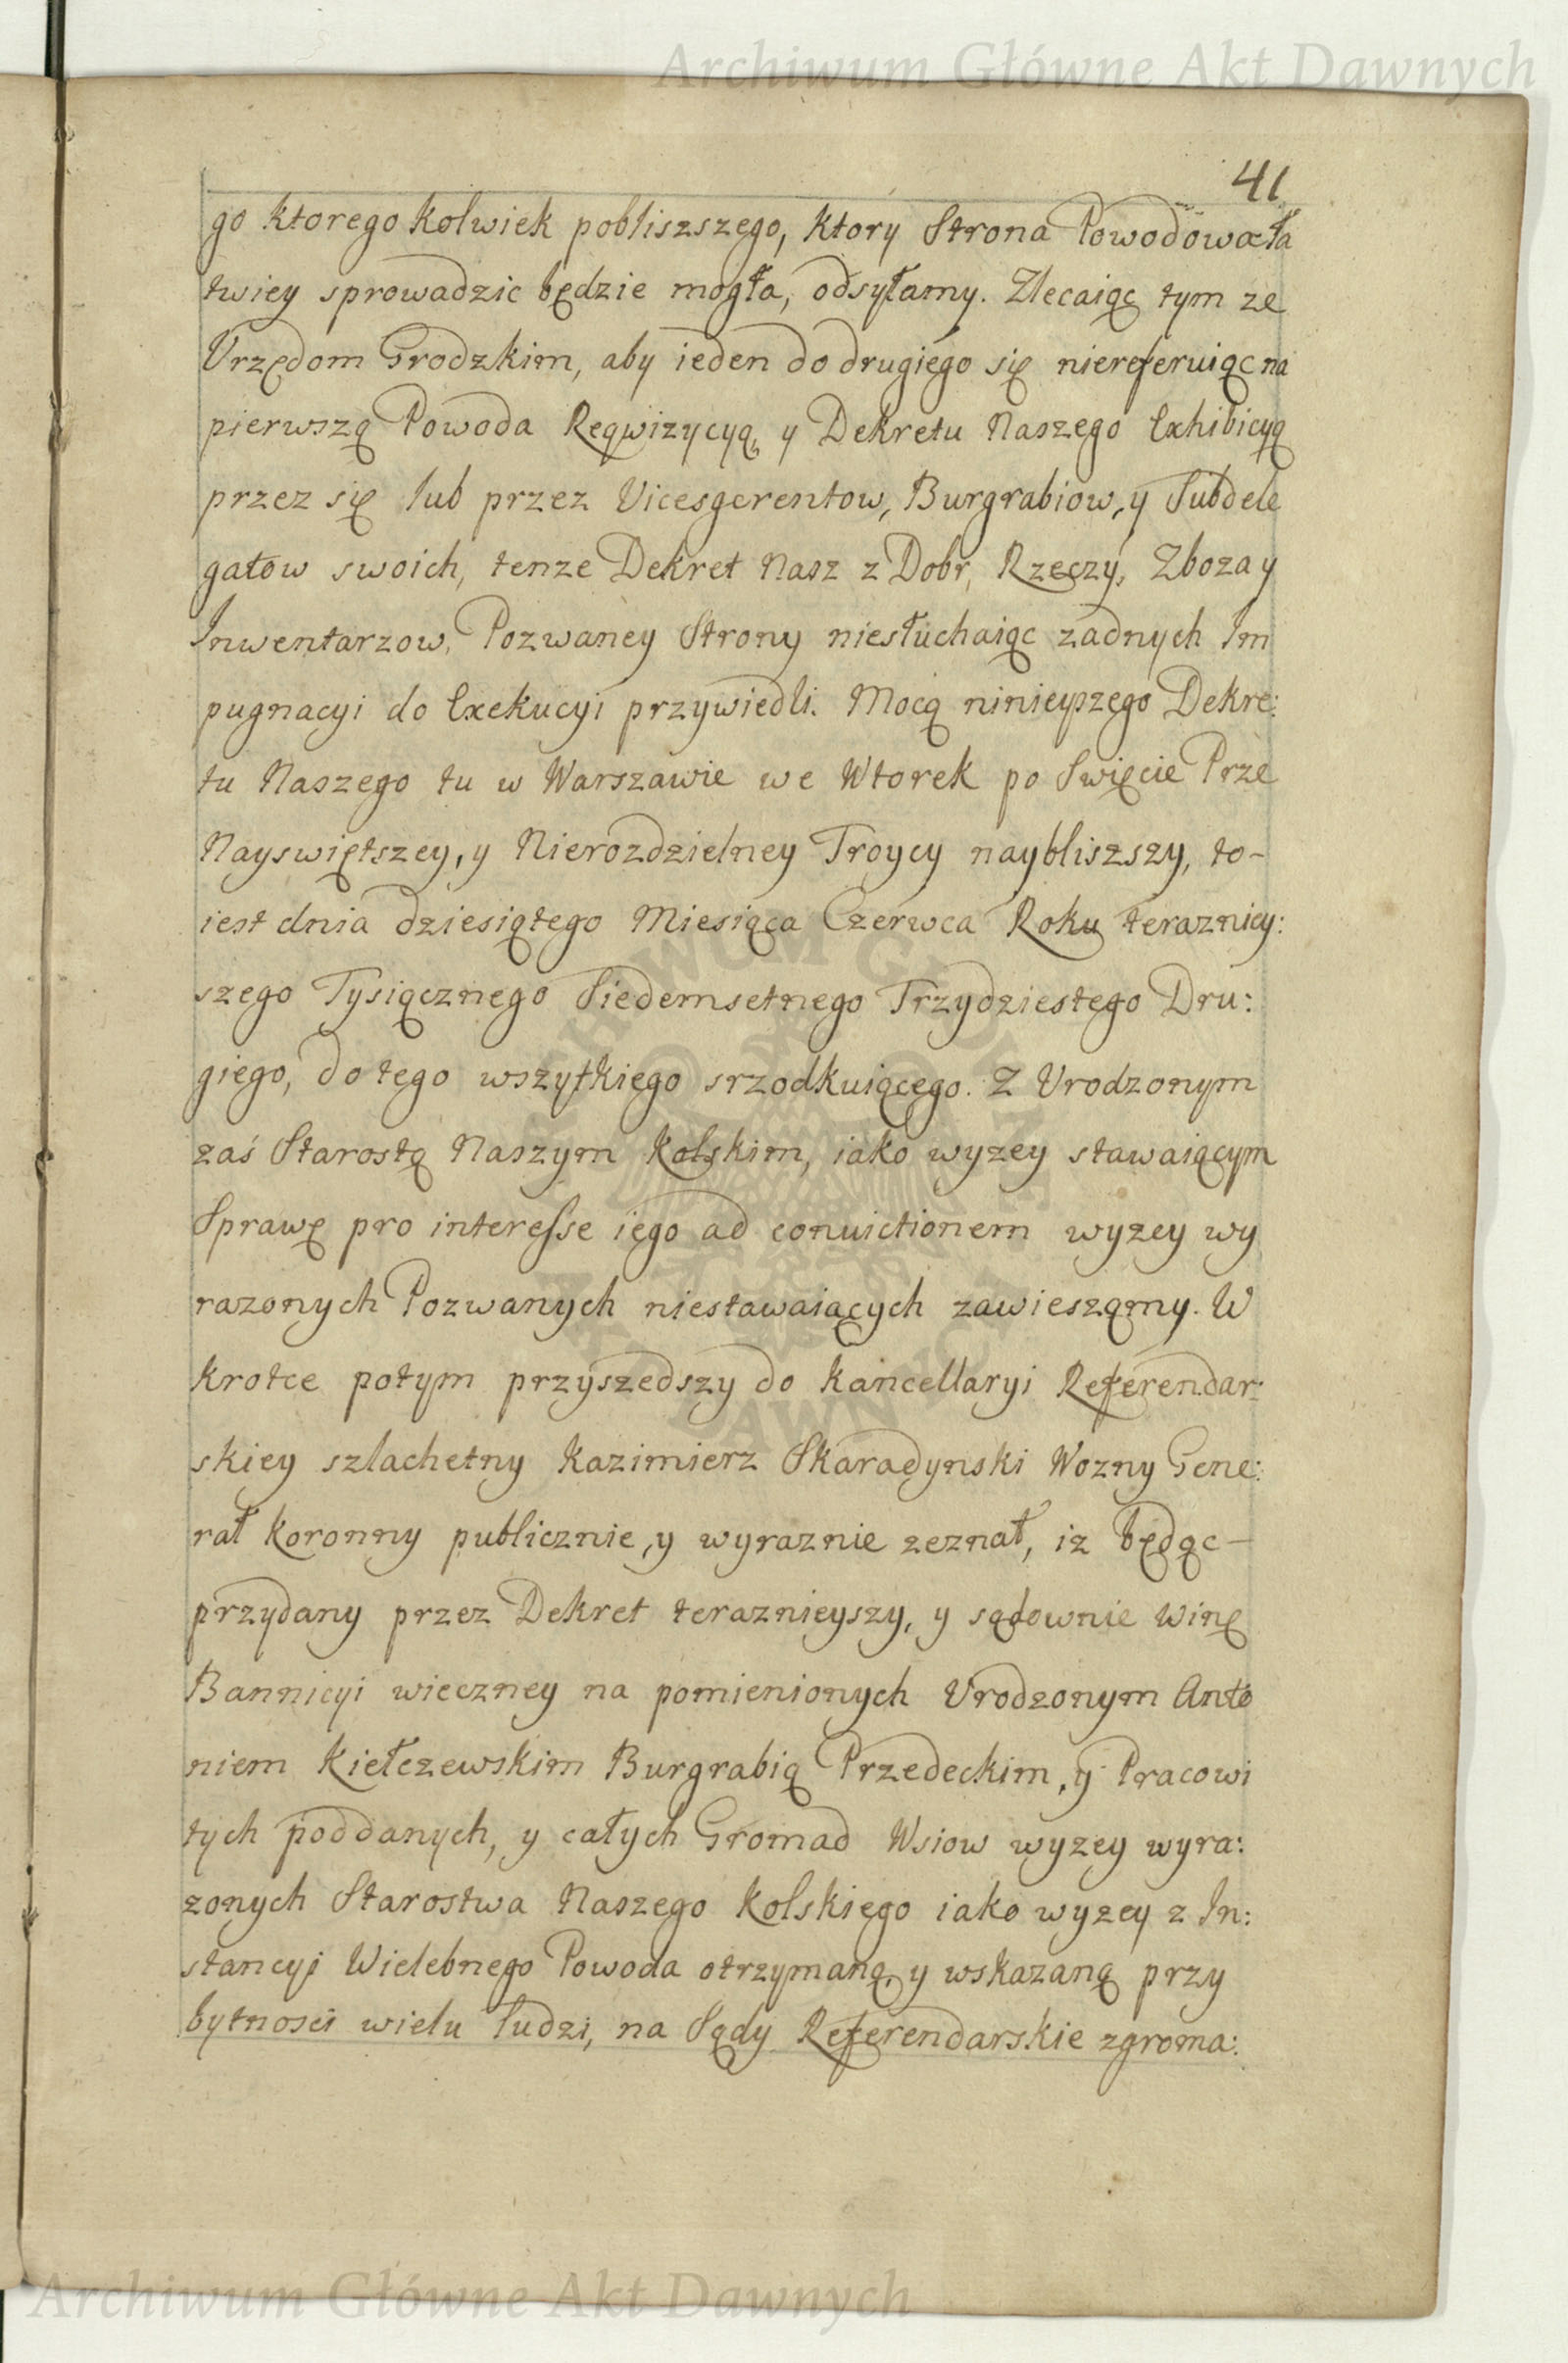 Archiwum Główne Akt Dawnych
41
go ktorego kolwiek pobliszszego, ktory Strona Powodowa ła
twiey sprowadzic będzie mogła, odsyłamy. Zlecaiąc tym ze
Vrzędom Grodzkim, aby ieden do drugiego się niereferuiąc na
pierwszą Powoda Reqwizycyą, y Dekretu Naszego Exhibicyą
przez się lub przez Vicesgerentow, Burgrabiow, y Subdele
gatow swoich, tenze Dekret Nasz z Dobr, Rzeczy, Zboza y
Inwentarzow, Pozwaney Strony niesłuchaiąc zadnych Im
pugnacyi do Exekucyi przywiedli. Mocą ninieyszego Dekre:
tu Naszego tu w Warszawie we Wtorek po Swięcie Prze
Nayswiętszey, y Nierozdzielney Troycy naybliszszy, to-
iest dnia dziesiątego Miesiąca Czerwca Roku teraznięy:
szego Tysiącznego Siedemsetnego Trzydziestego Dru:
giego, do tego wszytkiego srzodkuiącego. Z Vrodzonym
zaś Starostą Naszym Kolskim, iako wyzey stawaiącym
Sprawę pro interesse iego ad convictionem wyzey wy
razonych Pozwanych niestawaiących zawieszamy. W
krotce potym przyszedszy do Kancellaryi Referendar:
skiey szlachetny Kazimierz Skaradynski Wozny Gene:
rał Koronny publicznie, y wyraznie zeznał, iz będąc-
przydany przez Dekret teraznieyszy, y sądownie Winę
Bannicyi wieczney na pomienionych Vrodzonym Anto
niem Kiełczewskim Burgrabią Przedeckim, y Pracowi
tych poddanych, y całych Gromad Wsiow wyzey wyra:
zonych Starostwa Naszego Kolskiego iako wyzey z In:
stancyi Wielebnego Powoda otrzymaną, y wskazaną przy
bytnosci wielu ludzi, na Sądy Referendarskie zgroma:
Archiwum Główne Akt Dawnych